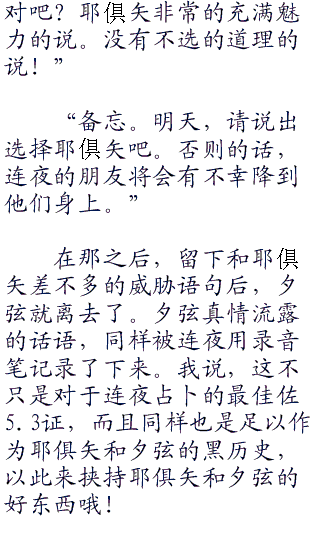 对吧？耶俱矢非常的充满魅
力的说。没有不选的道理的
说！”
“备忘。明天，请说出
选择耶俱矢吧。否则的话，
连夜的朋友将会有不幸降到
他们身上。”
在那之后，留下和耶俱
矢差不多的威胁语句后，夕
弦就离去了。夕弦真情流露
的话语，同样被连夜用录音
笔记录了下来。我说，这不
只是对于连夜占卜的最佳佐
5.3证，而且同样也是足以作
为耶俱矢和夕弦的黑历史，
以此来挟持耶俱矢和夕弦的
好东西哦！